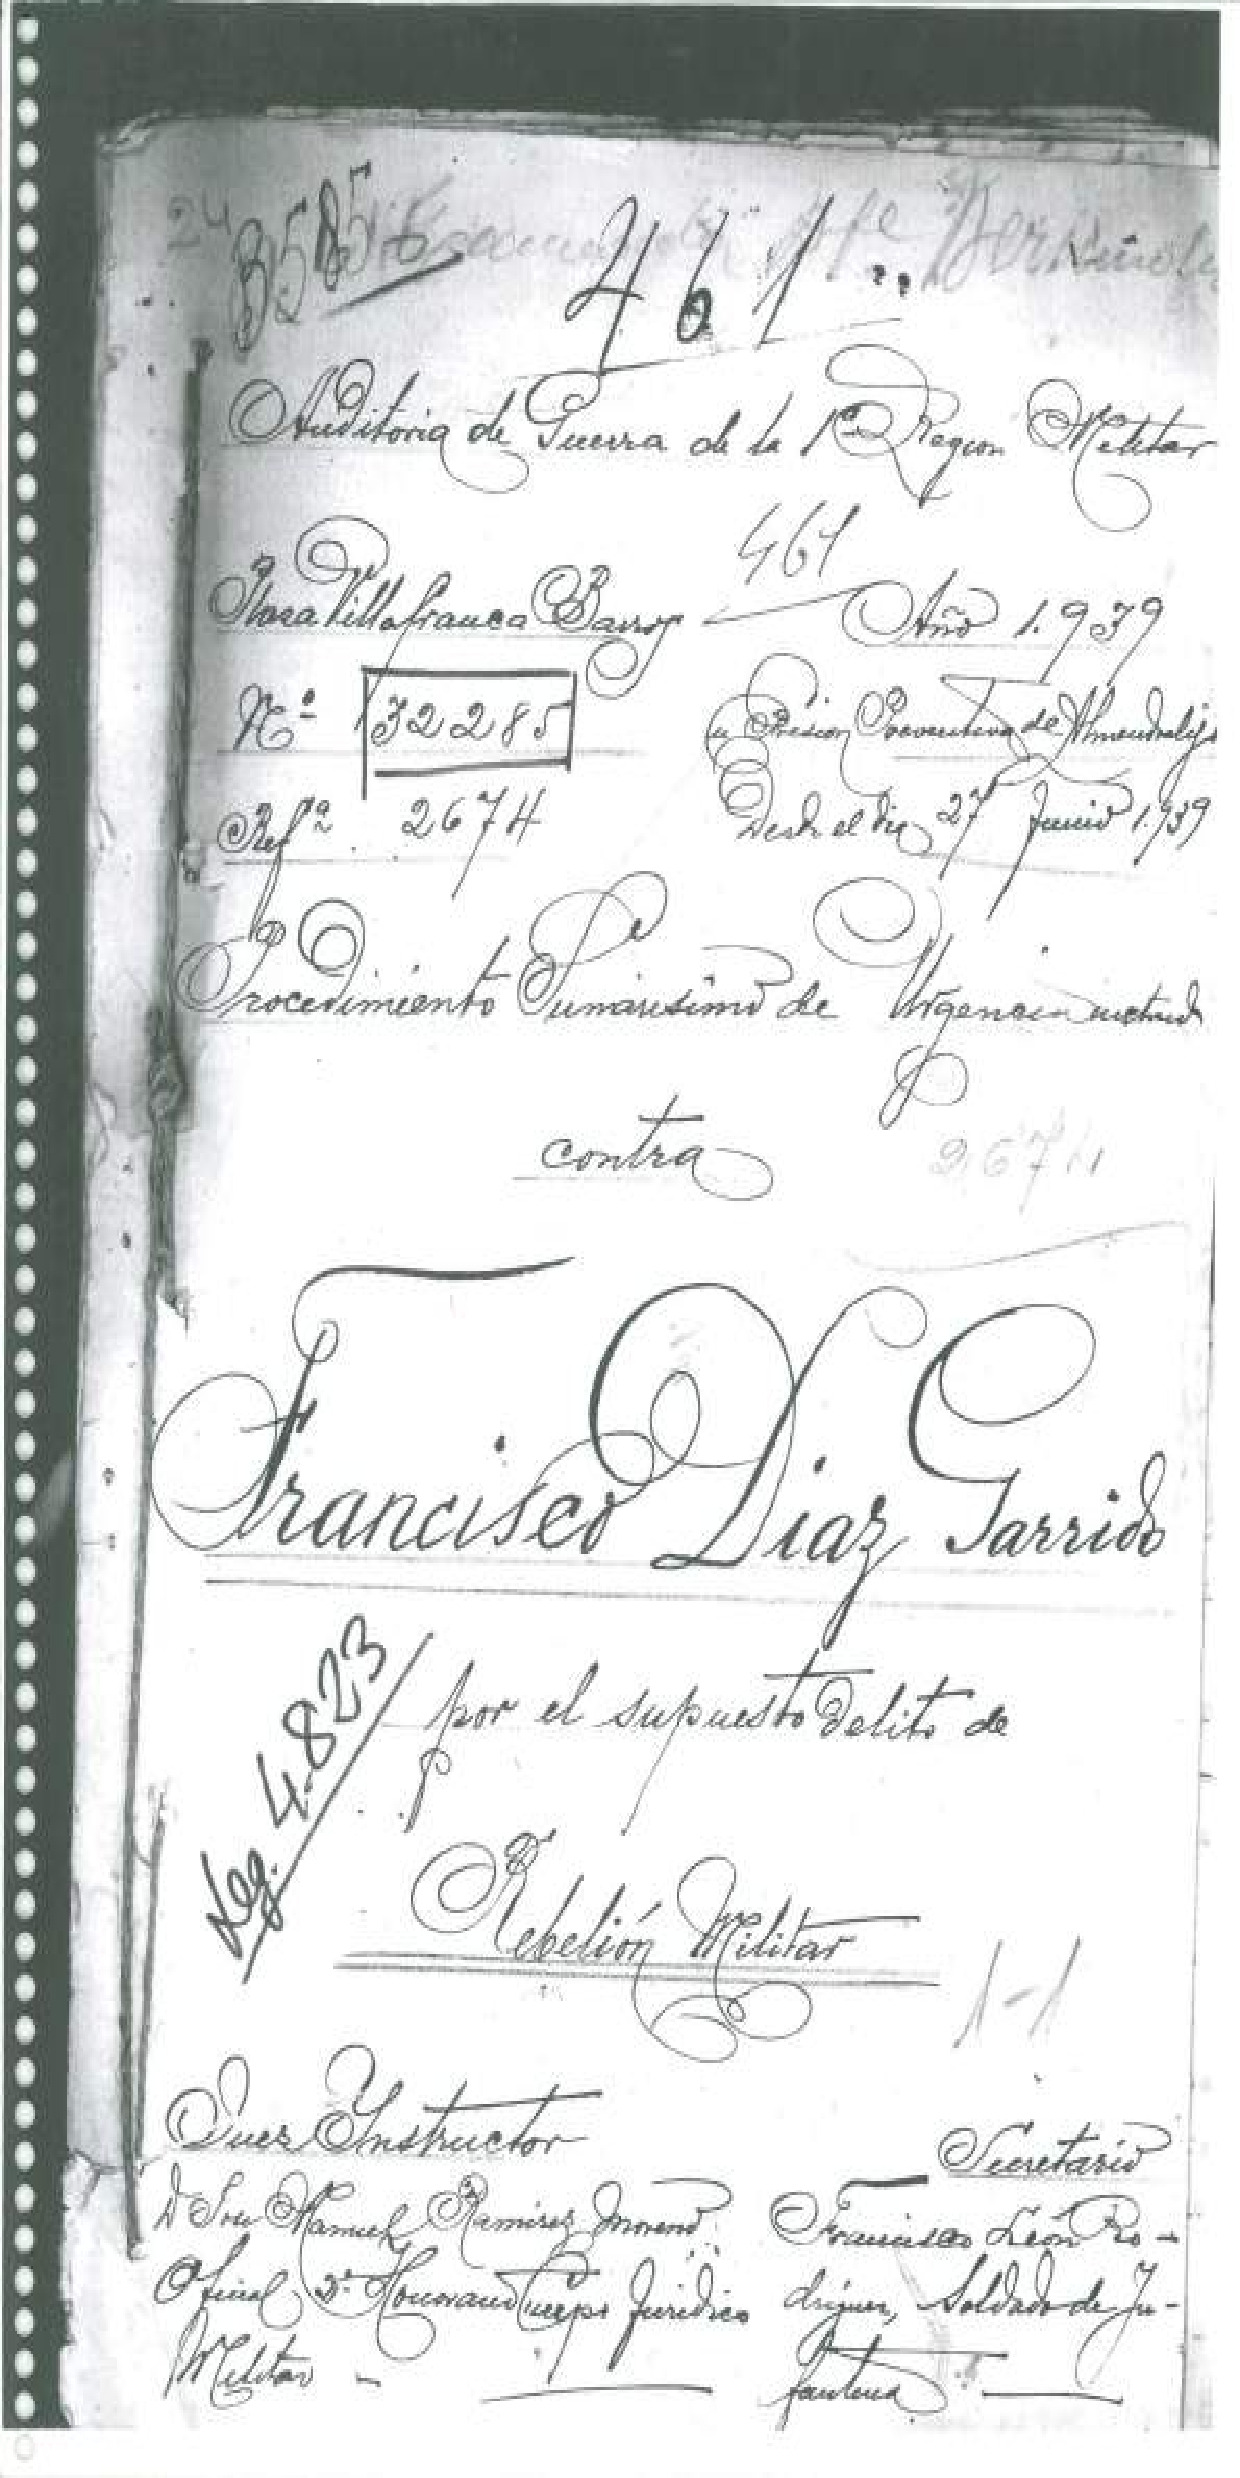 24
3585
461
Auditoria de Guerra de la 1ª Region Militar
461
Plaza Villafranca Barros
Año 1.939
Nº 32285
en Prisión Preventiva de Almendralejo
Refª 2674
Desde el dia 27 Junio 1.939
Procedimiento Sumarisimo de Urgencia
contra
2674
Francisco Diaz Garrido
Leg. 4.823
por el supuesto delito de
Rebelión Militar
1-1
Juez Instructor
Secretario
D Manuel Ramirez Moreno
Francisco León Ro-
Oficial 3º Honorario Cuerpo Juridico
driguez, Soldado de In-
Militar -
fanteria